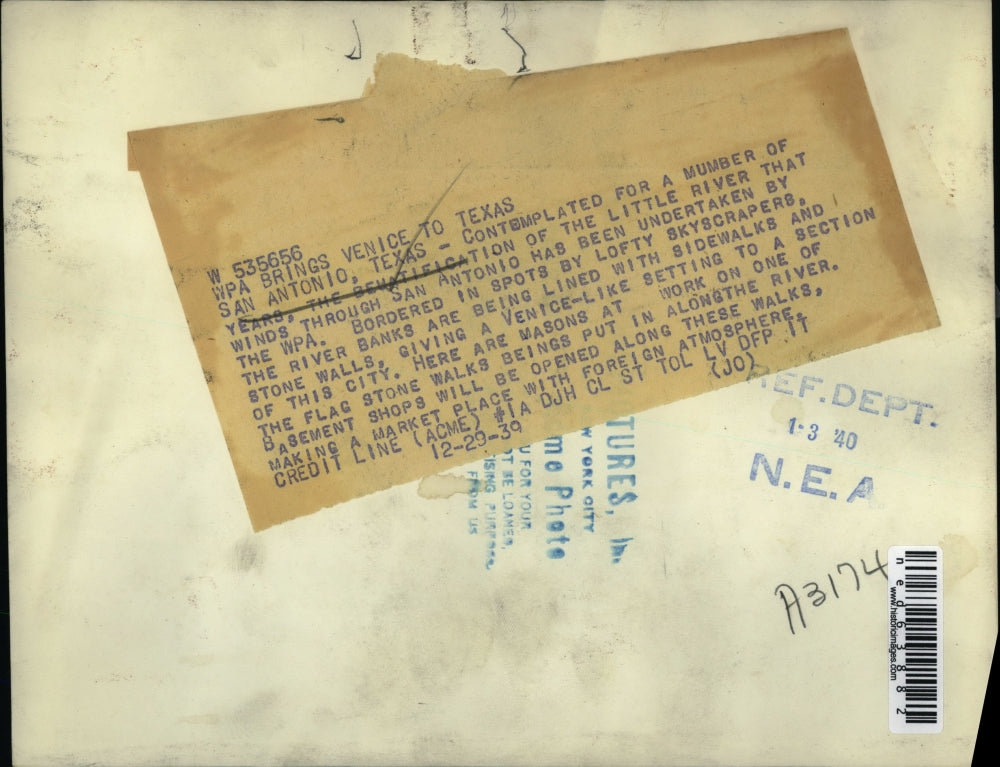 W 535656
WPA BRINGS VENICE TO TEXAS
SAN ANTONIO, TEXAS - CONTEMPLATED FOR A MUMBER OF
YEARS, THE BEUTIFICATION OF THE LITTLE RIVER THAT
WINDS THROUGH SAN ANTONIO HAS BEEN UNDERTAKEN BY
THE WPA. BORDERED IN SPOTS BY LOFTY SKYSCRAPERS,
THE RIVER BANKS ARE BEING LINED WITH SIDEWALKS AND
STONE WALLS, GIVING A VENICE-LIKE SETTING TO A SECTION
OF THIS CITY. HERE ARE MASONS AT WORK ON ONE OF
THE FLAG STONE WALKS BEINGS PUT IN ALONGTHE RIVER.
BASEMENT SHOPS WILL BE OPENED ALONG THESE WALKS,
MAKING A MARKET PLACE WITH FOREIGN ATMOSPHERE.
CREDIT LINE (ACME) 1A DJH CL ST TOL LV DFP IT
12-29-39 (JO)
REF. DEPT.
1-3 '40
N.E.A.
TURES, Inc
W YORK CITY
me Photo
U FOR YOUR
OT BE LOANED,
ISING PURPOSES
FROM US
A3174
ned63882
www.historicimages.com